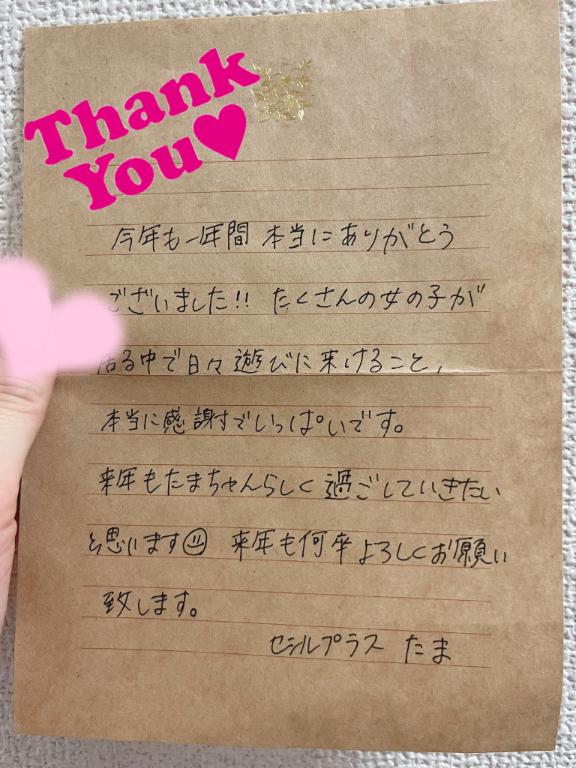 Thank
You♥
今年も一年間 本当にありがとう
ございました!! たくさんの女の子が
居る中で日々遊びに来けること、
本当に感謝でいっぱいです。
来年もたまちゃんらしく過ごしていきたい
と思います☺ 来年も何卒よろしくお願い
致します。
セシルプラス たま